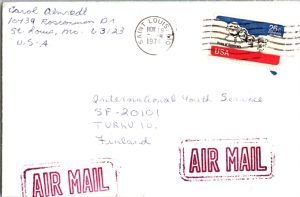 Carol
10439 Roscommon Dr
St. Louis, Mo. 63123
U-S-A
SAINT LOUIS, MO
NOV
197
26c
USA
International Youth Service
SF-20101
TURKU 10.
Finland
AIR MAIL
AIR MAIL